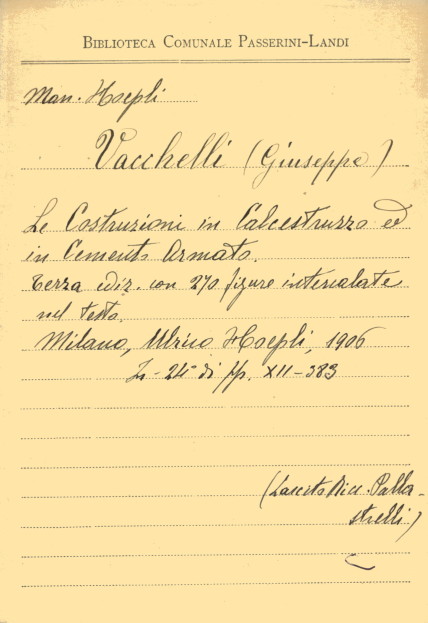 BIBLIOTECA COMUNALE PASSERINI-LANDI
Man. Hoepli
Vacchelli (Giuseppe)
Le Costruzioni in Calcestruzzo ed
in Cemento Armato.
Terza ediz. con 270 figure intercalate
nel testo.
Milano, Ulrico Hoepli, 1906
In-24° di pp. XII-383
(Lascito Ricc. Palla-
strelli)